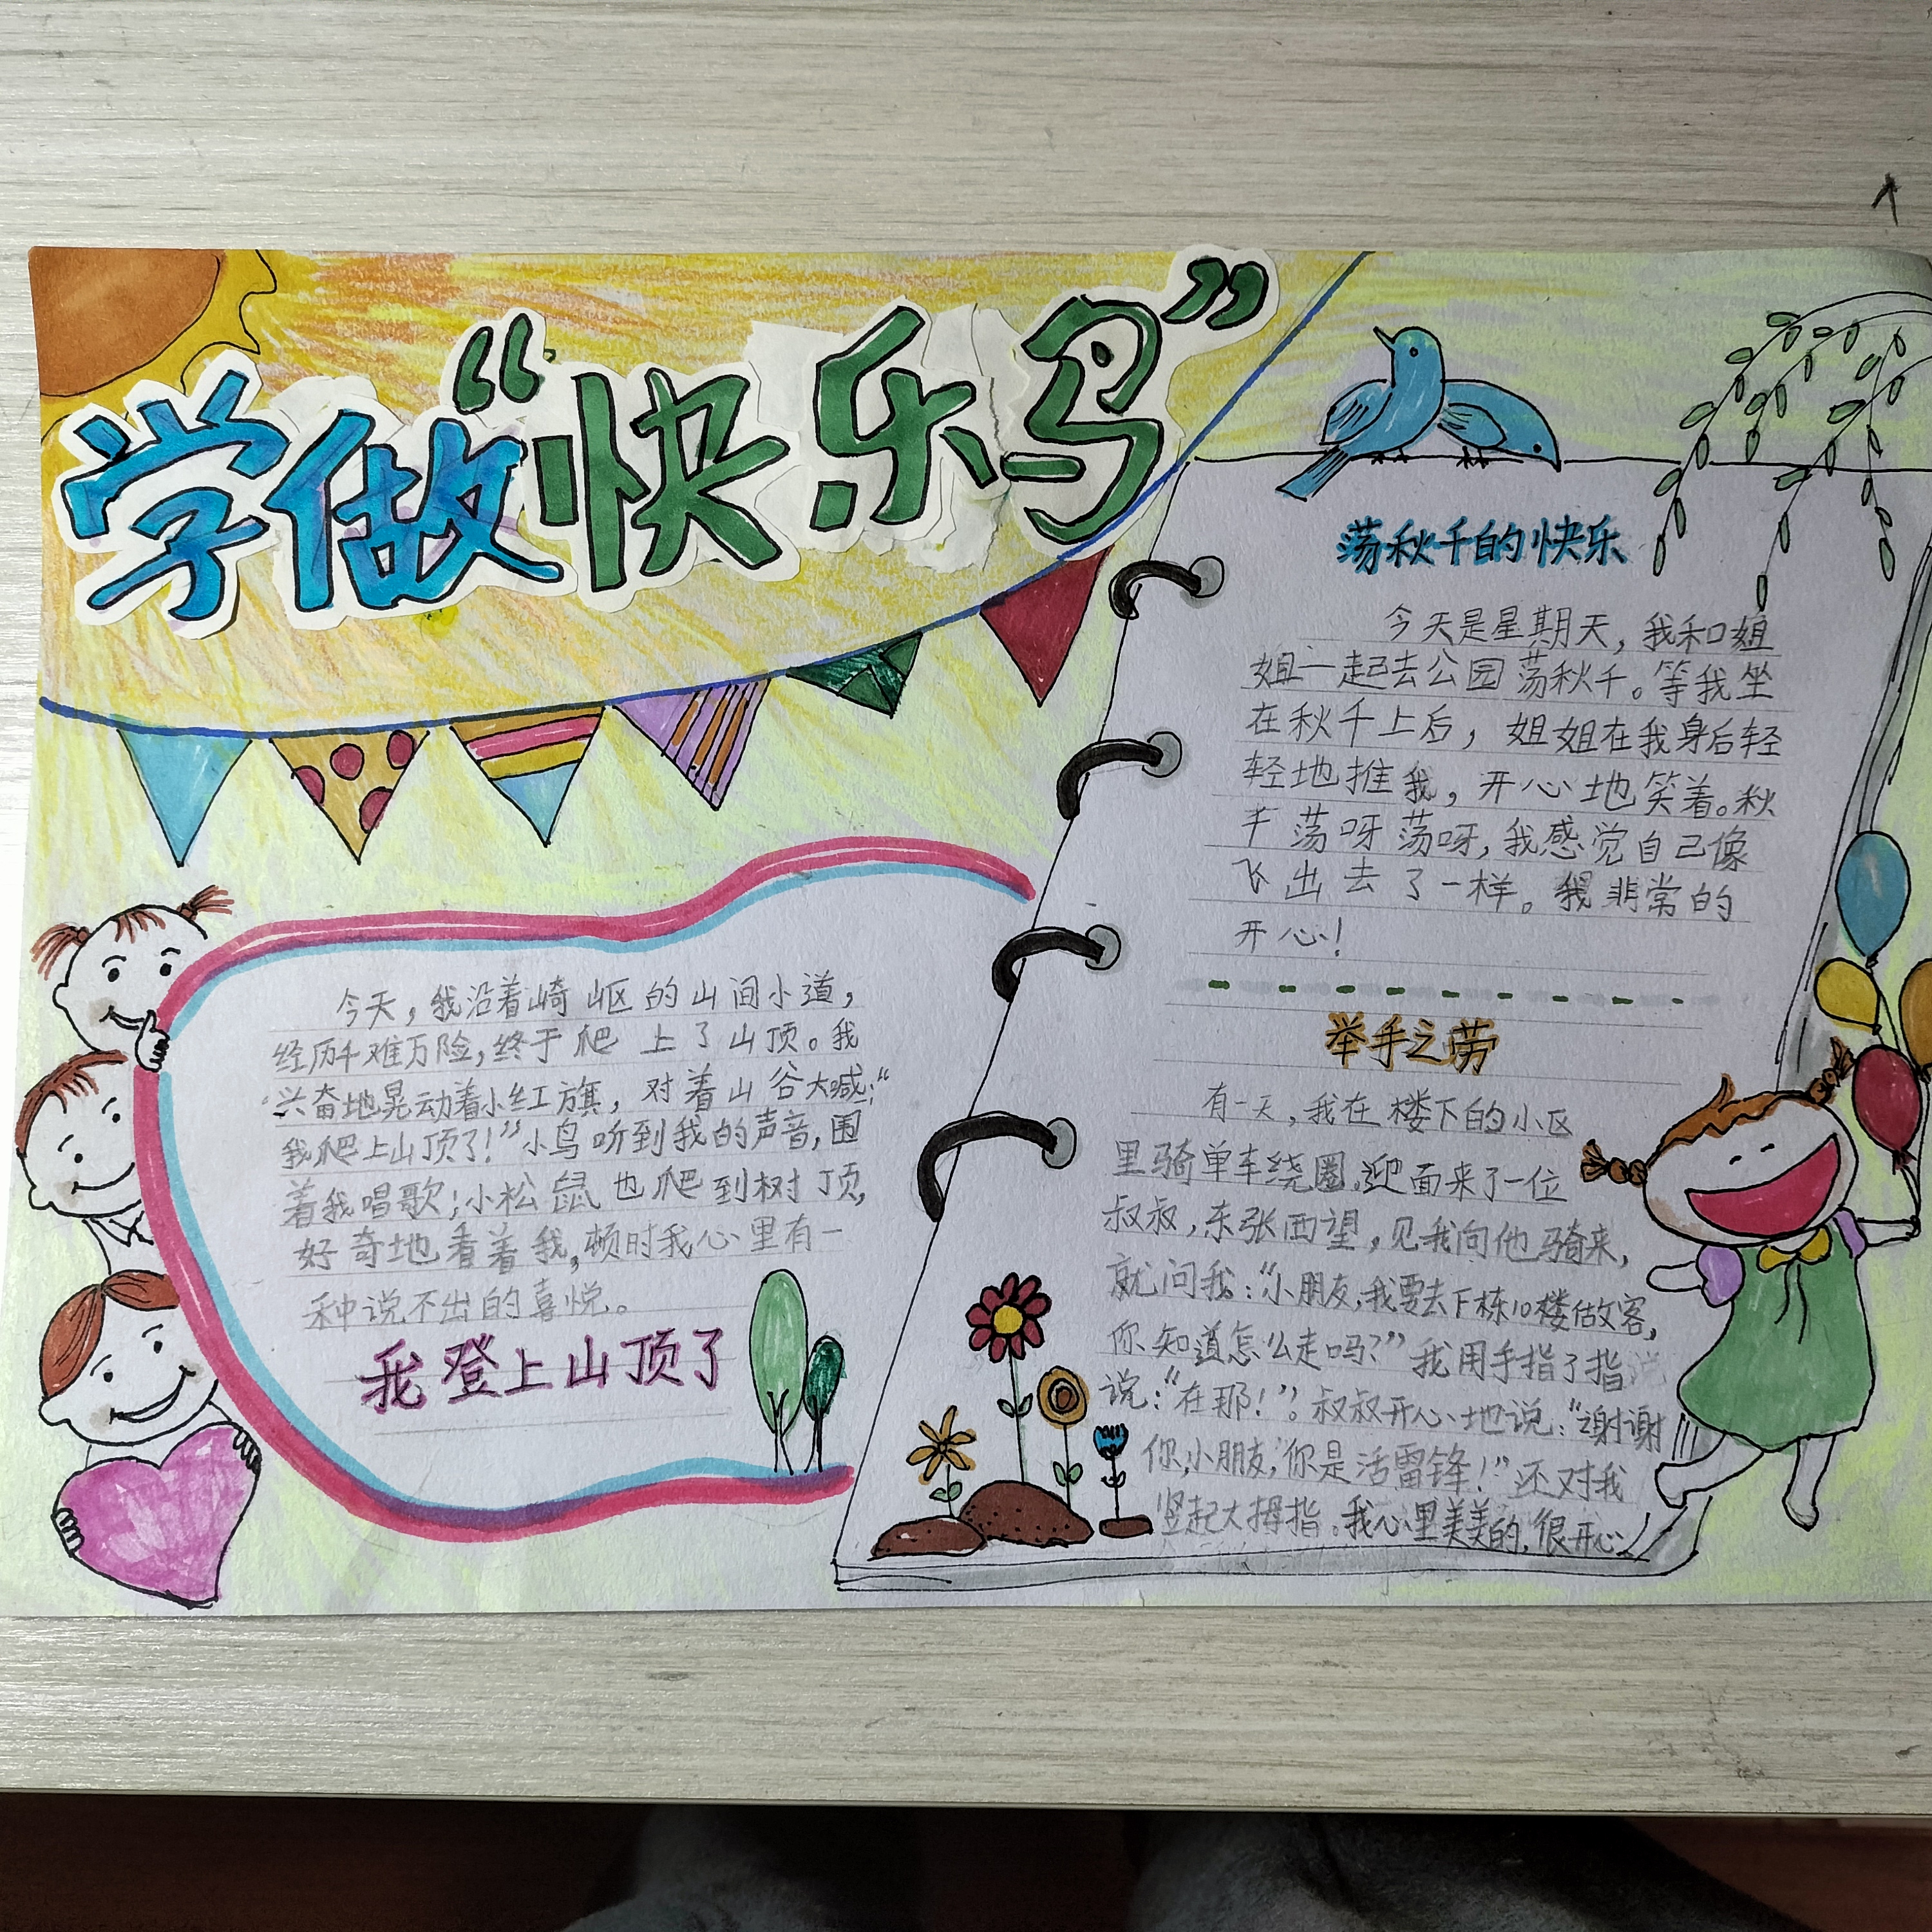 学做“快乐鸟”
今天，我沿着崎岖的山间小道，
经历千难万险，终于爬上了山顶。我
兴奋地晃动着小红旗，对着山谷大喊：“
我爬上山顶了！”小鸟听到我的声音，围
着我唱歌；小松鼠也爬到树顶，
好奇地看着我，顿时我心里有一
种说不出的喜悦。
我登上山顶了
荡秋千的快乐
今天是星期天，我和姐
姐一起去公园荡秋千。等我坐
在秋千上后，姐姐在我身后轻
轻地推我，开心地笑着。秋
千荡呀荡呀，我感觉自己像
飞出去了一样。我非常的
开心！
举手之劳
有一天，我在楼下的小区
里骑单车绕圈，迎面来了一位
叔叔，东张西望，见我向他骑来，
就问我：“小朋友，我要去下栋10楼做客，
你知道怎么走吗？”我用手指了指
说：“在那！”。叔叔开心地说：“谢谢
你，小朋友，你是活雷锋！”还对我
竖起大拇指。我心里美美的，很开心